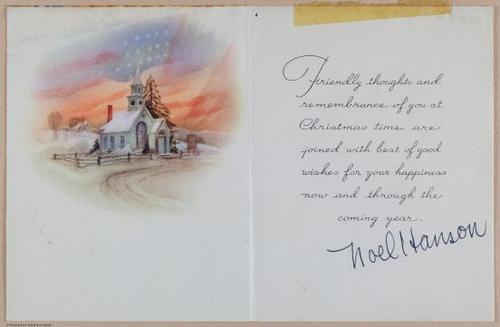 Friendly thoughts and
remembrance of you at
Christmas time are
joined with best of good
wishes for your happiness
now and through the
coming year.
Noel Hanson